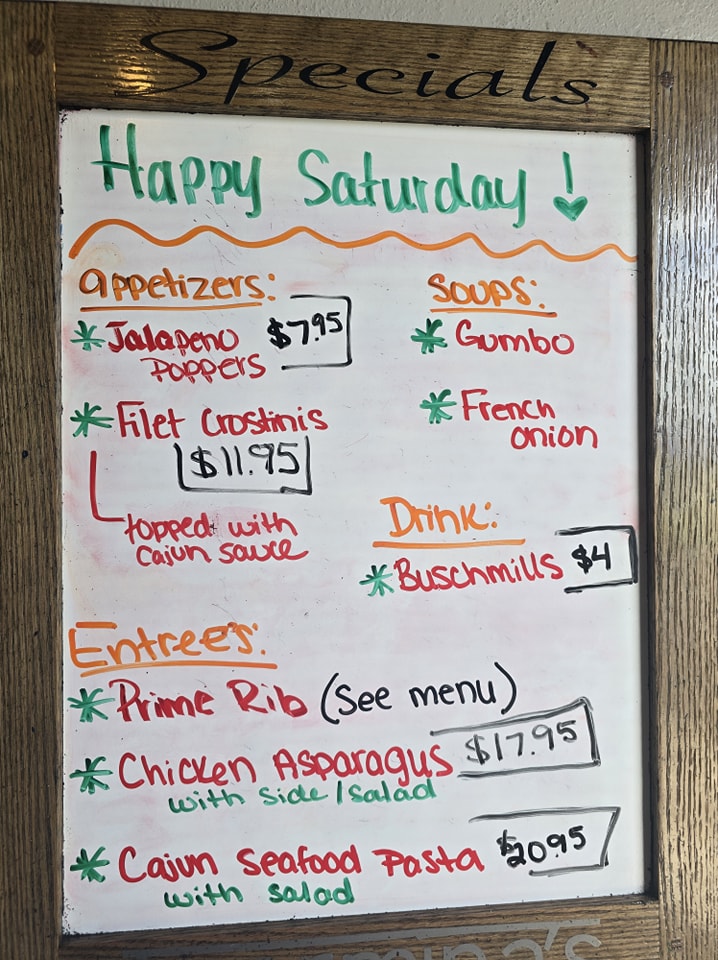 Specials
Happy Saturday !
Appetizers:
* Jalapeno $7.95
Poppers
* Filet Crostinis
$11.95
topped with
cajun sauce
Soups:
* Gumbo
* French
onion
Drink:
* Buschmills $4
Entrees:
* Prime Rib (See menu)
* Chicken Asparagus $17.95
with side/salad
* Cajun Seafood Pasta $20.95
with salad